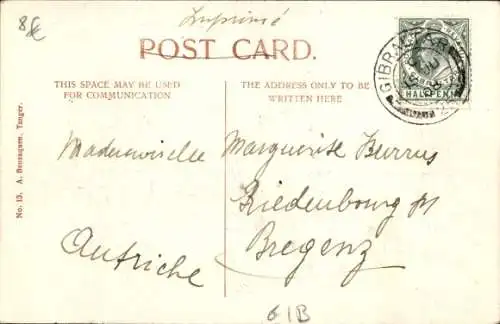 8€
Imprimé
POST CARD.
THIS SPACE MAY BE USED
FOR COMMUNICATION
THE ADDRESS ONLY TO BE
WRITTEN HERE
GIBRALTAR
HALFPENNY
No. 13. A. Benzaquen, Tanger.
Mademoiselle Marguerite
Riedenbourg
Bregenz
Autriche
GIB